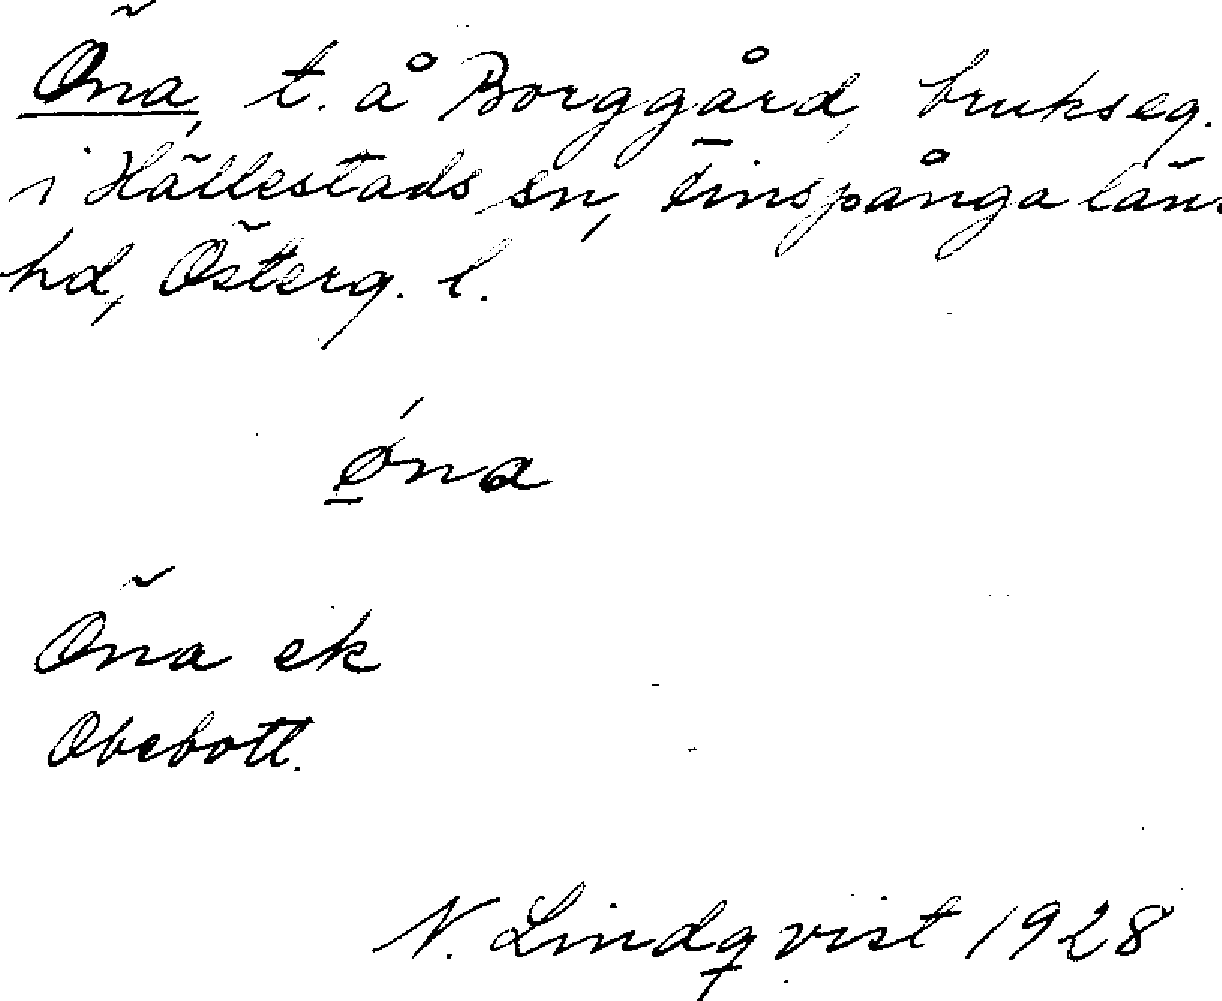 Öna, t. å Borggård, brukseg.
i Hällestads sn, Finspånga läns
hd, Österg. l.
øna
Öna ek
Obebott.
N. Lindqvist 1928